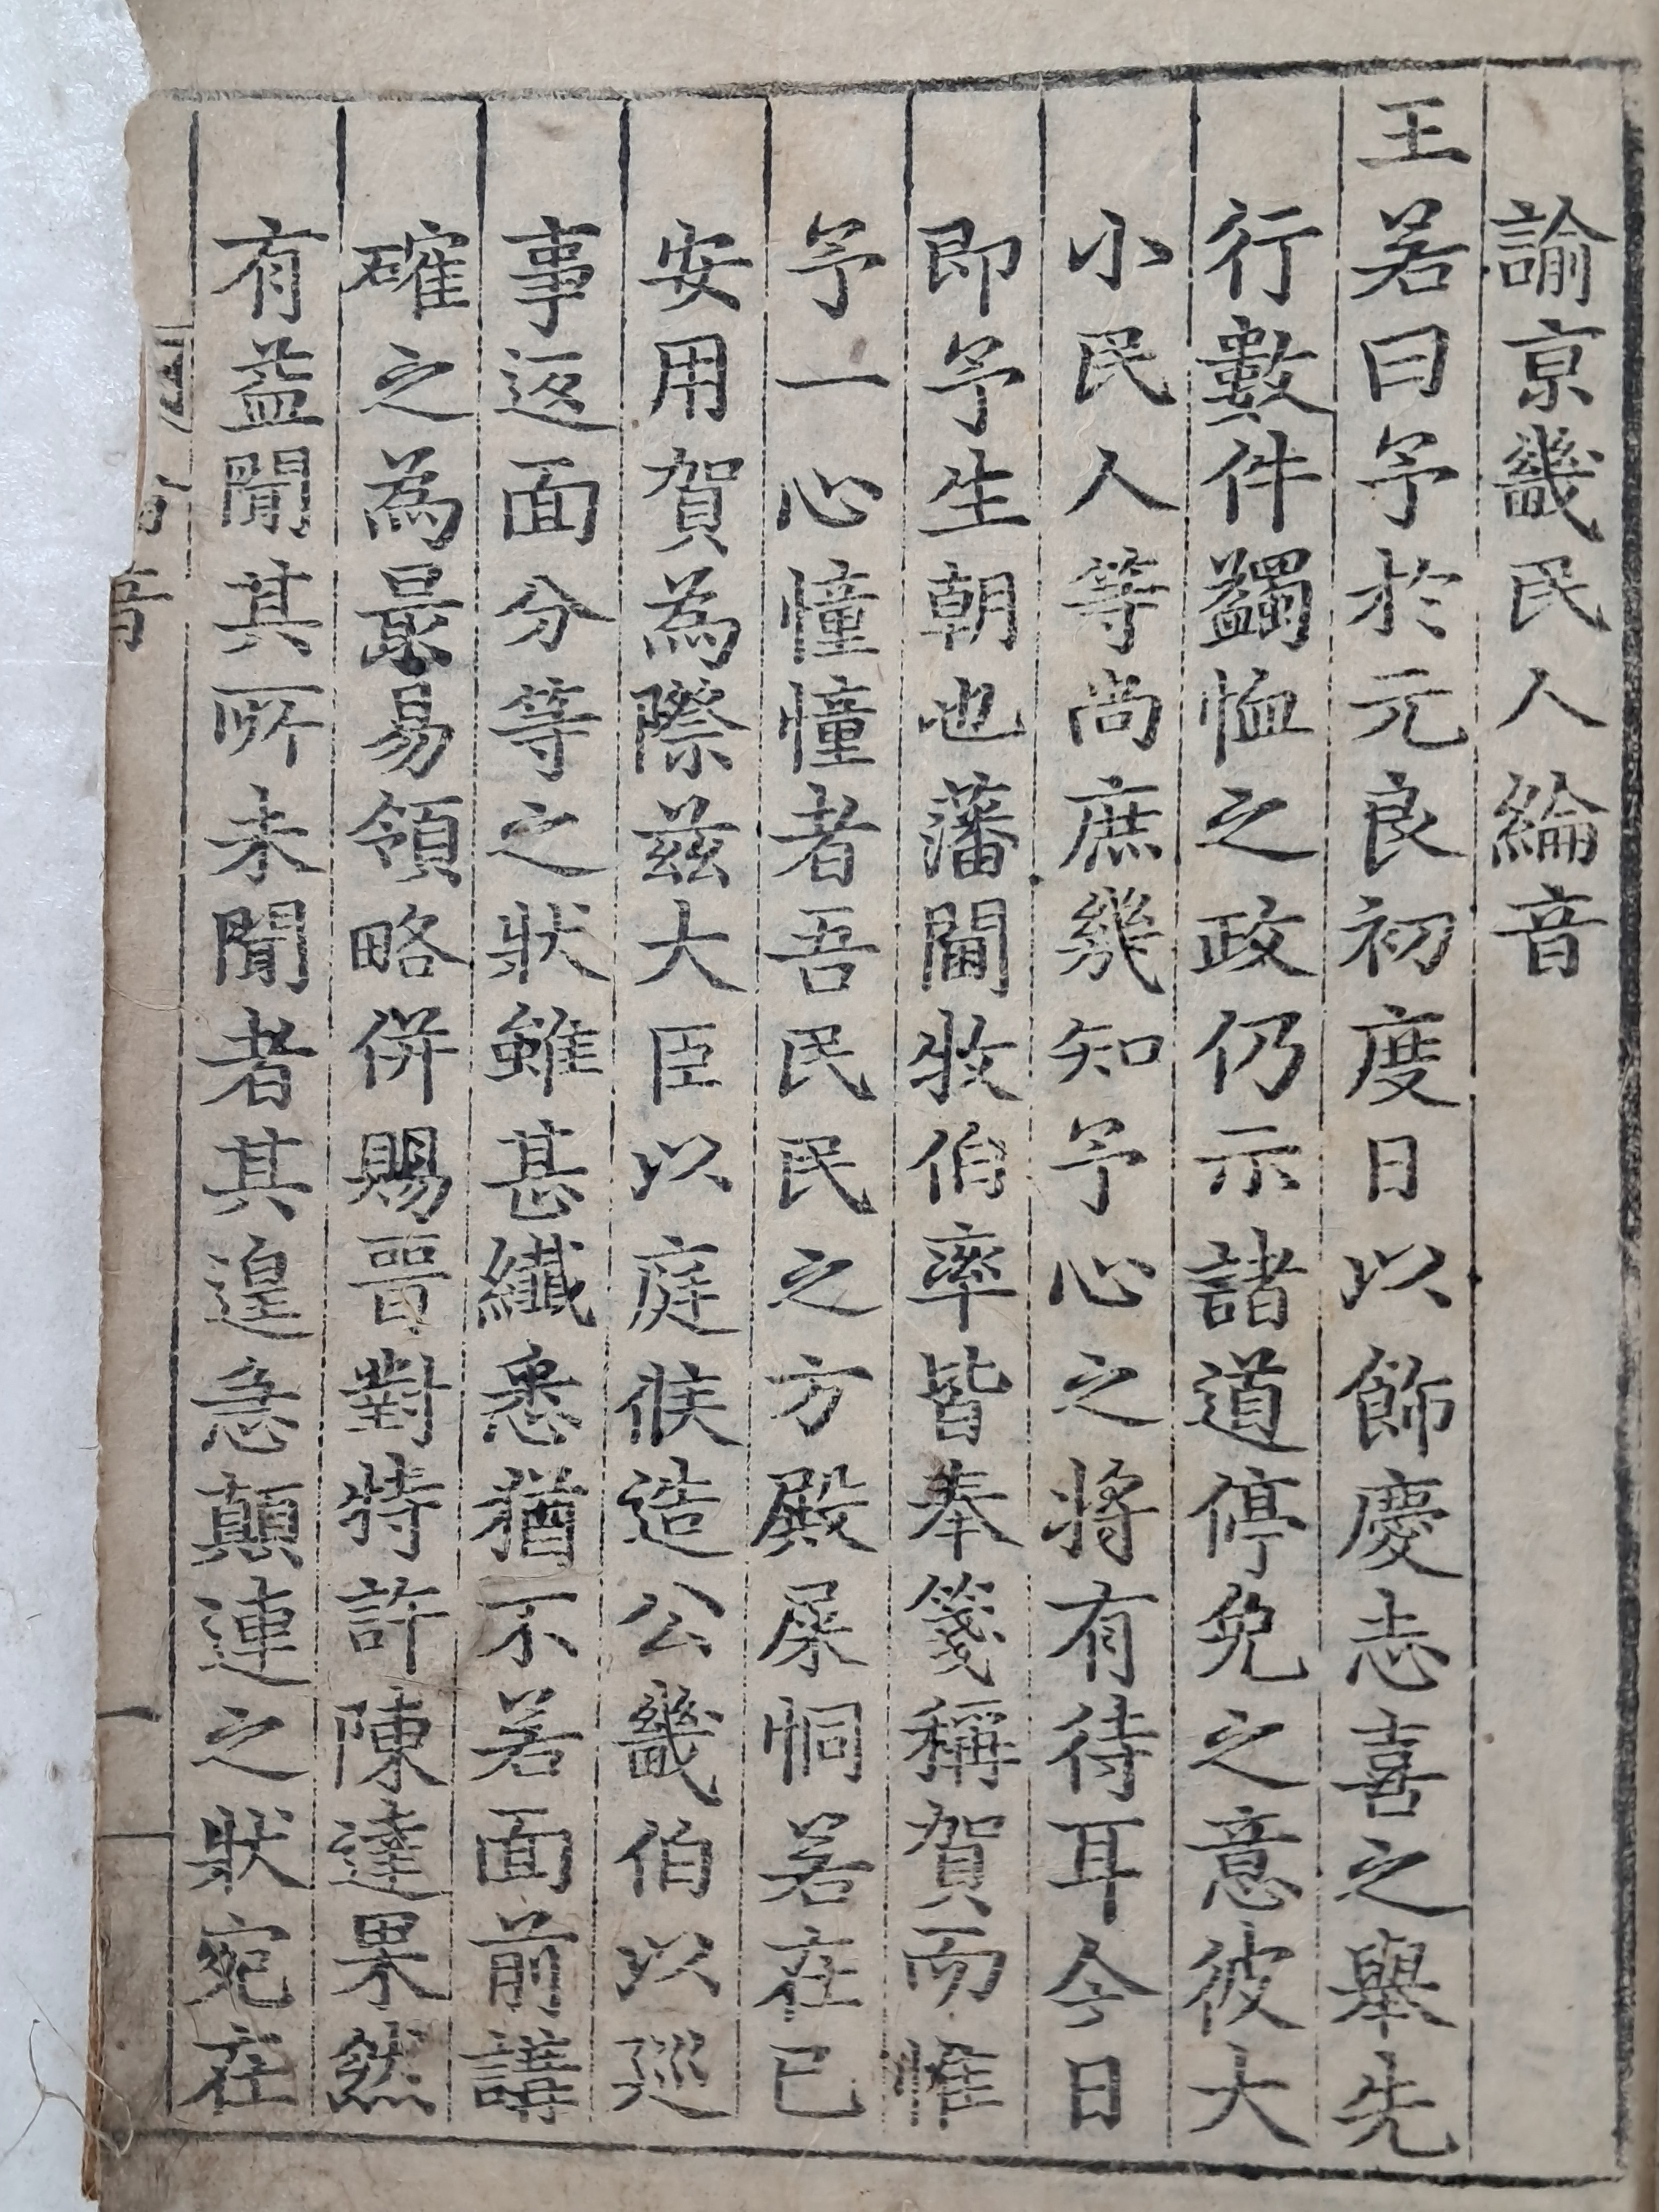 諭京畿民人綸音
王若曰予於元良初度日以飾慶志喜之舉先
行數件蠲恤之政仍示諸道停免之意彼大
小民人等尚庶幾知予心之將有待耳今日
即予生朝也藩閫牧伯率皆奉箋稱賀而惟
予一心憧憧者吾民民之方殿屎恫若在已
安用賀為際茲大臣以庭候造公畿伯以廵
事返面分等之狀雖甚纖悉猶不若面前講
確之為最易領略併賜晋對特許陳達果然
有益聞其所未聞者其遑急顛連之狀宛在
音
一